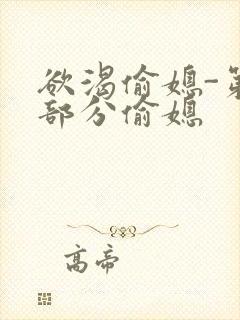 欲渴偷媳-第
部分偷媳
高帝